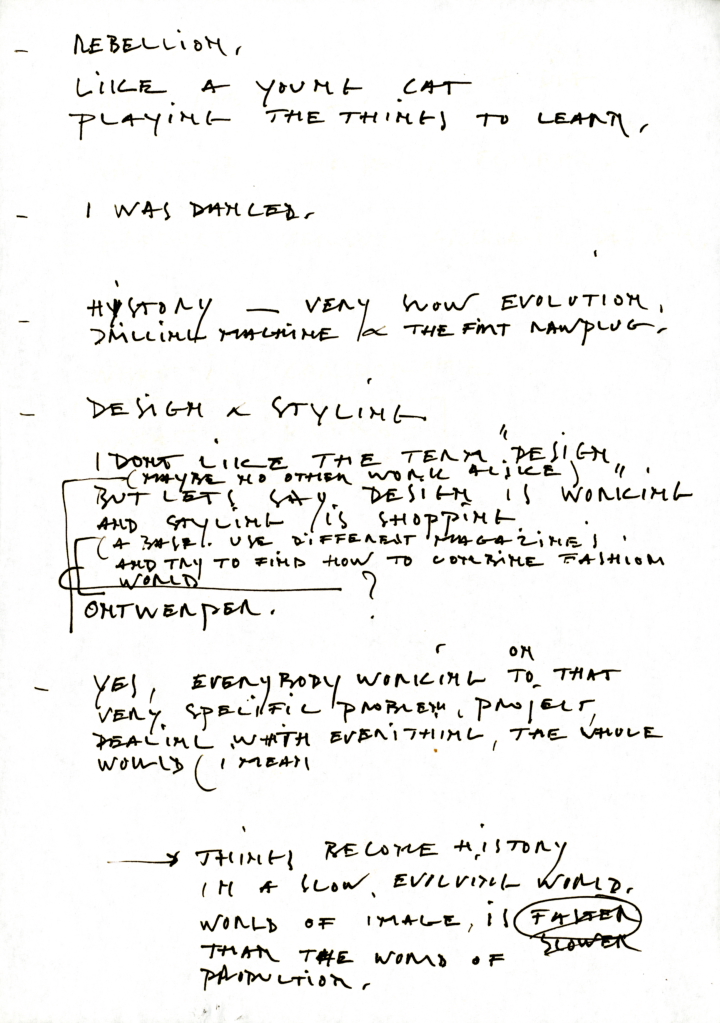 - REBELLION.
LIKE A YOUNG CAT
PLAYING THE THINGS TO LEARN.
- I WAS DANCED.
- HYSTORY — VERY SLOW EVOLUTION.
DRILLING MACHINE & THE FIRST RAWPLUG.
- DESIGN & STYLING
I DONT LIKE THE TERM "DESIGN"
(MAYBE NO OTHER WORK ALIKE)
BUT LETS SAY DESIGN IS WORKING
AND STYLING IS SHOPPING
(A BASE. USE DIFFERENT MAGAZINES
AND TRY TO FIND HOW TO COMBINE FASHION
WORLD ?
ONTWERPER.
- YES, EVERYBODY WORKING TO ON THAT
VERY SPECIFIC PROBLEM, PROJECT,
DEALING WITH EVERITHING, THE WHOLE
WORLD ( I MEAN
→ THINGS BECOME HISTORY
IN A SLOW EVOLVING WORLD.
WORLD OF IMAGE, IS FASTER
SLOWER
THAN THE WORLD OF
PRODUCTION.